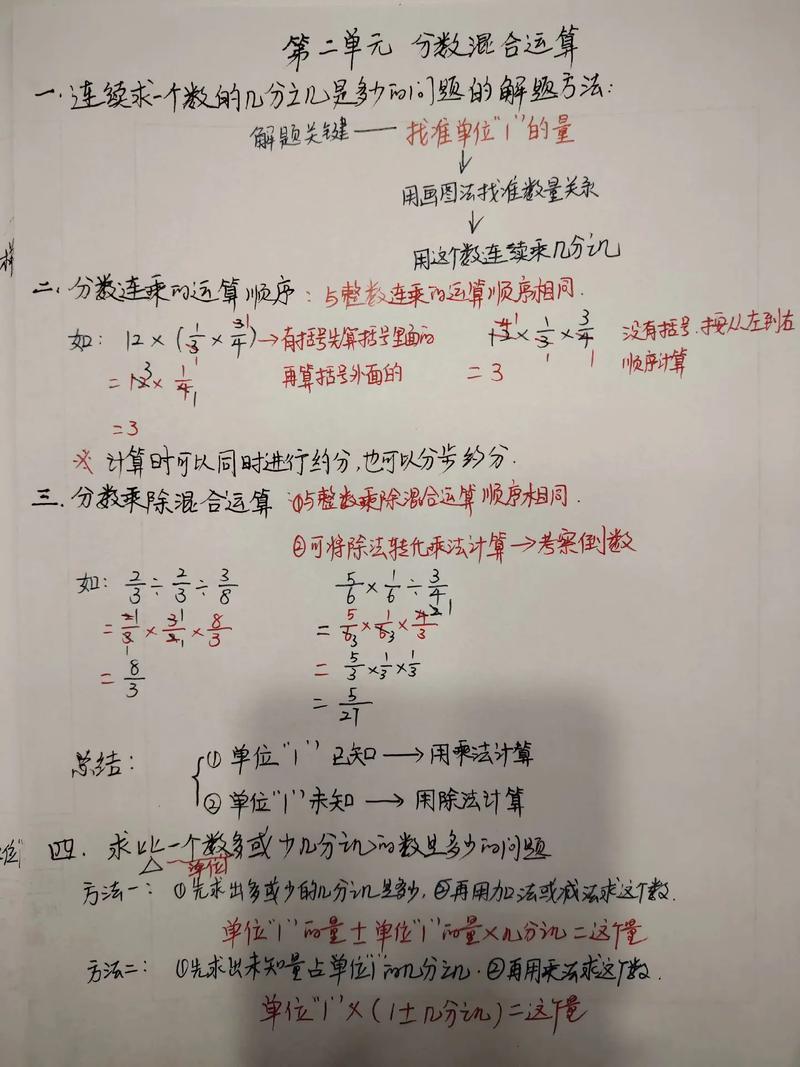 第二单元 分数混合运算
一.连续求一个数的几分之几是多少的问题的解题方法:
解题关键——找准单位"1"的量
↓
用画图法找准数量关系
↓
用这个数连续乘几分之几
二、分数连乘的运算顺序:与整数连乘的运算顺序相同.
如: 12×(1/3×3/4)→有括号先算括号里面的 12×1/3×3/4 没有括号.按从左到右
=12×1/4 再算括号外面的 =3 顺序计算
=3
※ 计算时可以同时进行约分,也可以分步约分.
三.分数乘除混合运算 ①与整数乘除混合运算顺序相同.
②可将除法转化乘法计算→考察倒数
如: 2/3÷2/3÷3/8 5/6×1/6÷3/4
=2/3×3/2×8/3 =5/6×1/6×4/3
=8/3 =5/3×1/3×1/3
=5/27
总结: ①单位"1"已知→用乘法计算
②单位"1"未知→用除法计算
四.求比一个数多或少几分之几的数是多少的问题
单位1
方法一: ①先求出多或少的几分之几是多少,②再用加法或减法求这个数.
单位"1"的量±单位"1"的量×几分之几=这个量
方法二: ①先求出未知量占单位"1"的几分之几.②再用乘法求这个数.
单位"1"×(1±几分之几)=这个量